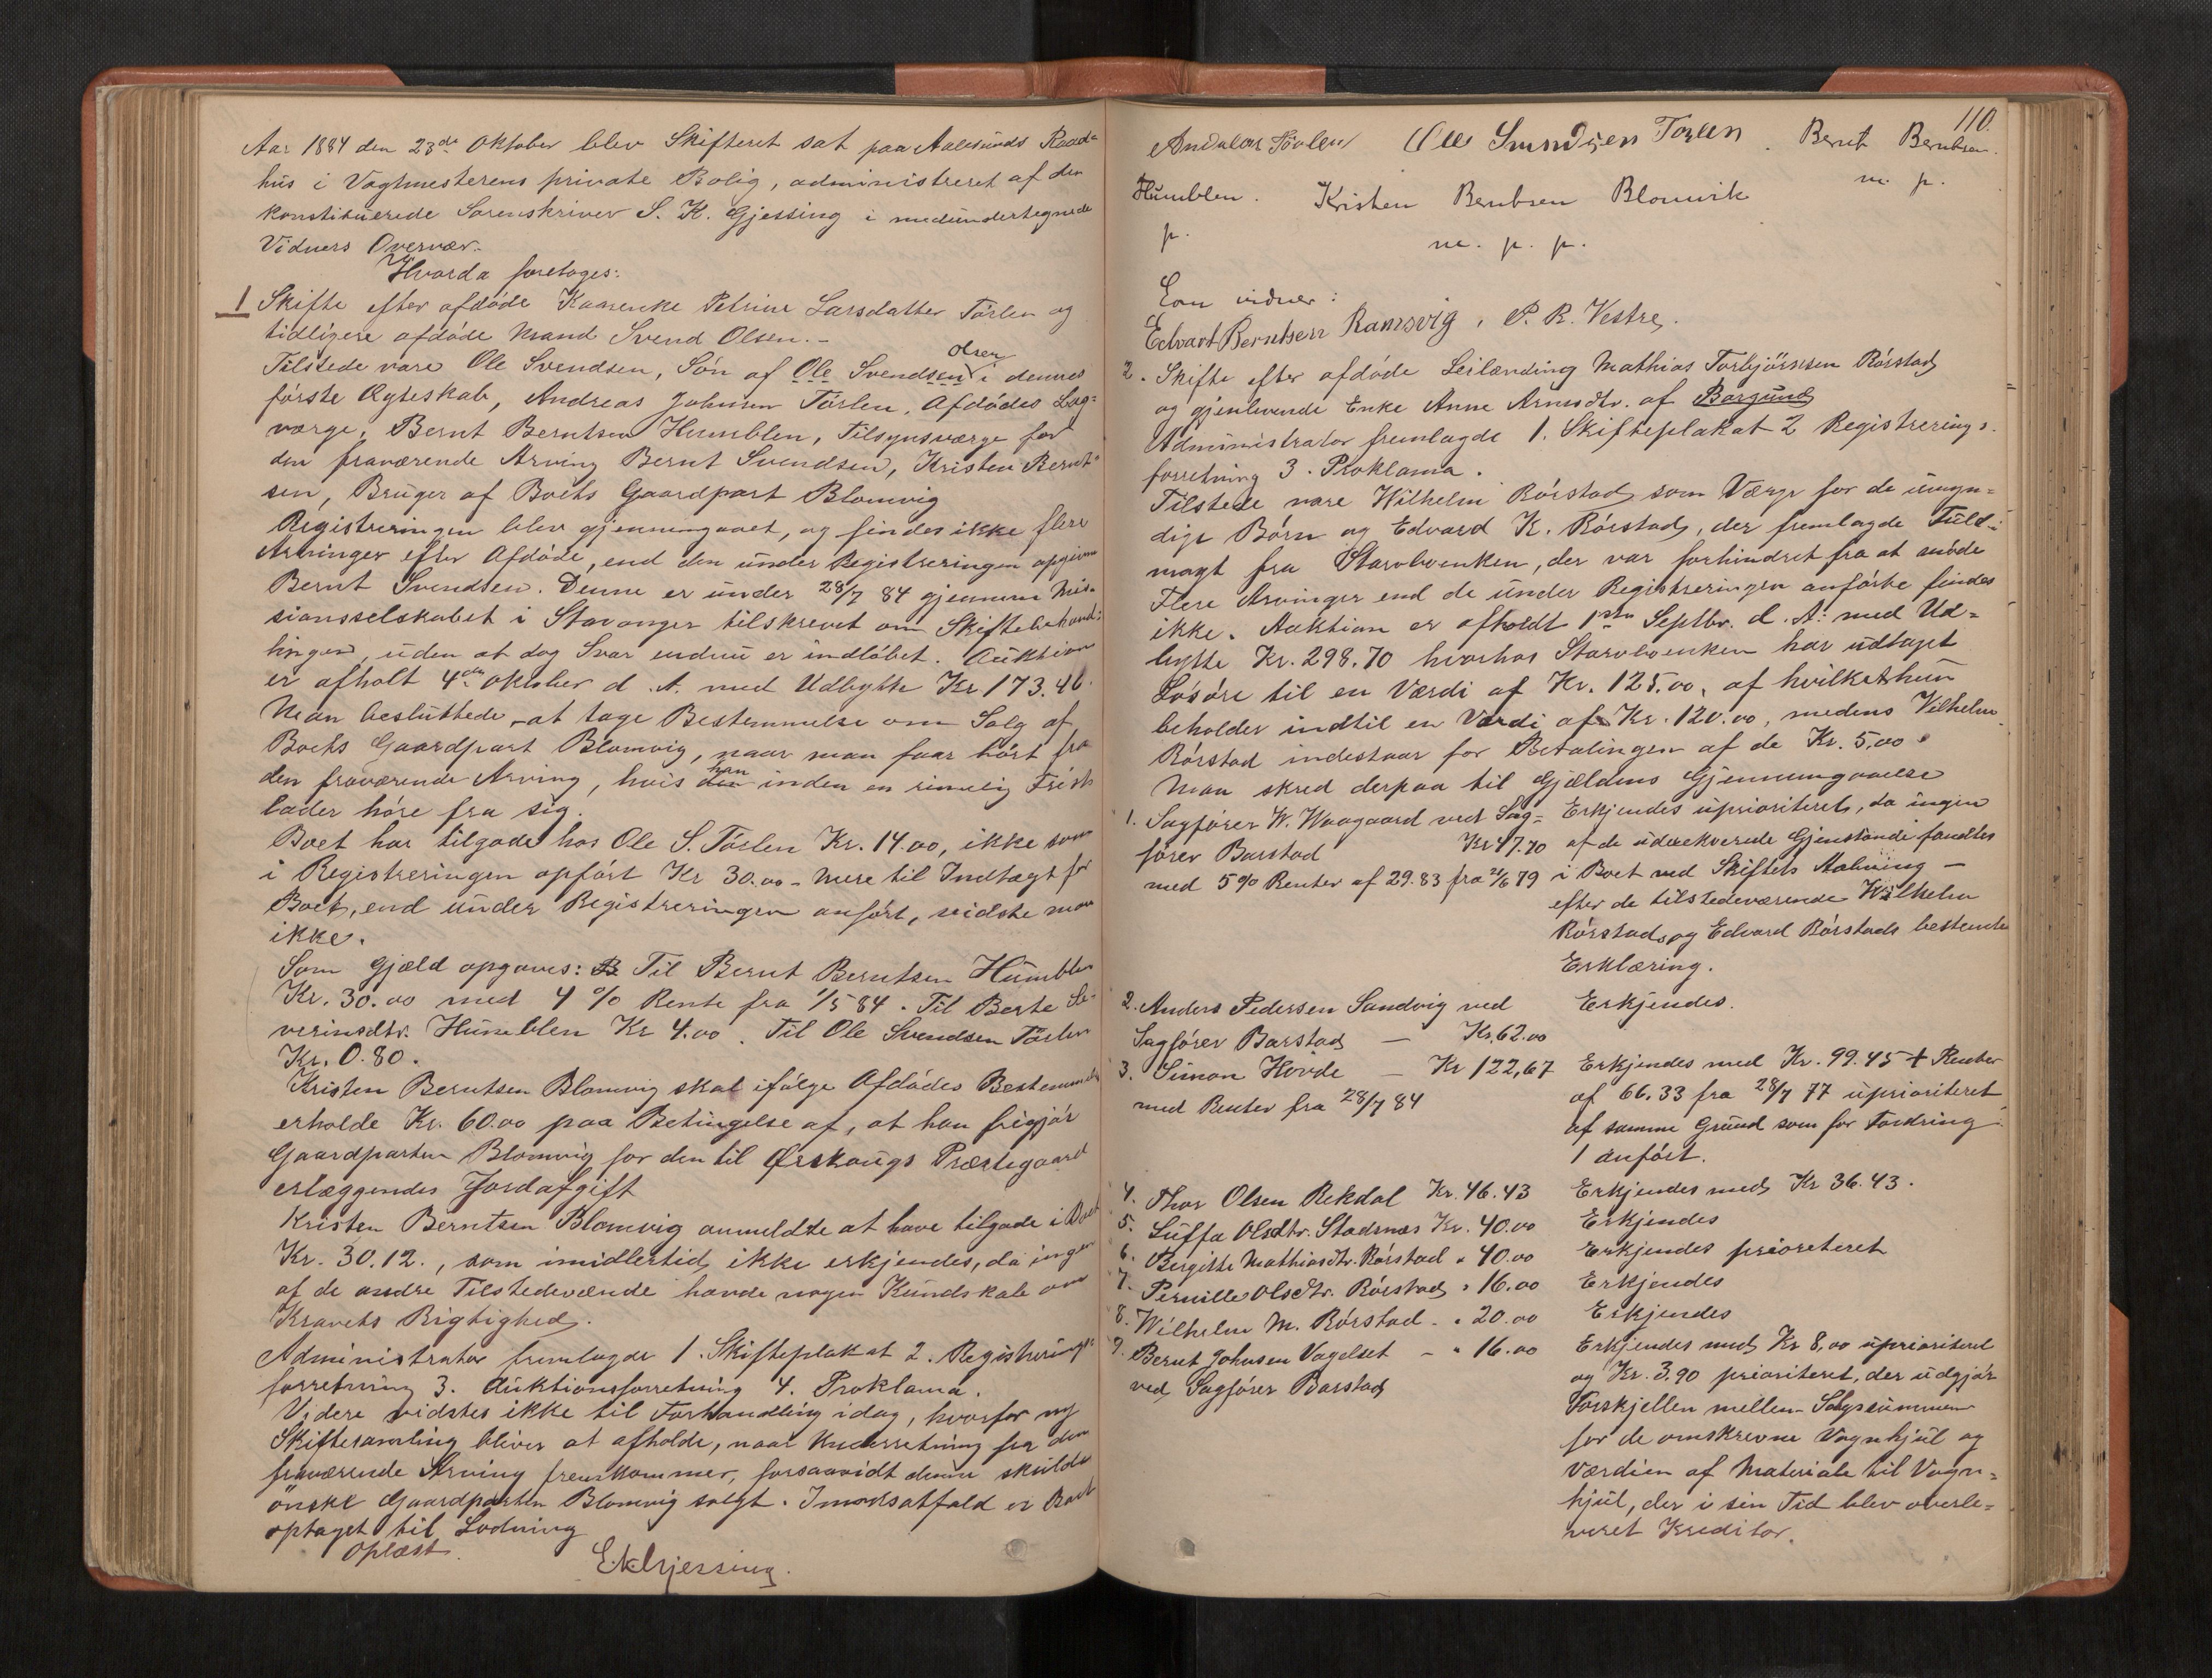 Aar 1884 den 23de Oktober blev Skifteret sat paa Aalesunds Raad-
hus i Vagtmesterens private Bolig, administreret af den
konstituerede Sorenskriver S. K. Gjessing i medundertegnede
Vidners Overvær.
Hvorda foretoges:
1 Skifte efter afdöde Karenke Petrine Larsdatter Törlen og
tidligere afdöde Mand Svend Olsen.-
Tilstede vare Ole Svendsen, Sön af Ole Svendsen Olsen i dennes
förste Ægteskab, Andreas Johnsen Törlen, Afdödes Lag-
værge, Bernt Berntsen Humblen, Tilsynsværge for
den fraværende Arving Bernt Svendsen, Kristen Bernt-
sen, Bruger af Boets Gaardpart Blomvig
Registreringen blev gjennemgaaet, og findes ikke flere
Arvinger efter Afdöde, end den under Registreringen opgivne
Bernt Svendsen. Denne er under 28/7 84 gjennem Mis-
sionsselskabet i Stavanger tilskrevet om Skiftebehand-
lingen, uden at dog Svar endnu er indlöbet. Auktion
er afholt 4de Oktober d. A. med Udbytte Kr. 173.46.
Man besluttede at tage Bestemmelse om Salg af
Boets Gaardpart Blomvig, naar man faar hört fra
den fraværende Arving, hvis den han inden en rimelig Frist
lader höre fra sig.
Boet har tilgode hos Ole S. Törlen Kr. 14.00, ikke som
i Registreringen opfört Kr 30.00 - Mere til Indtægt for
Boet, end under Registreringen anfört, vidste man
ikke.
Som Gjæld opgaves: B Til Bernt Berntsen Humblen
Kr. 30.00 med 4 % Rente fra 1/5 84. Til Berte Se-
verinsdtr. Humblen Kr 4.00. Til Ole Svendsen Törlen
Kr. 0.80.
Kristen Berntsen Blomvig skal ifölge Afdödes Bestemmelse
erholde Kr. 60.00 paa Betingelse af, at han frigjör
Gaardparten Blomvig for den til Ørskougs Præstegaard
erlæggendes Jordafgift
Kristen Berntsen Blomvig anmeldte at have tilgode i Boet
Kr. 30.12., som imidlertid ikke erkjendes, da ingen
af de andre Tilstedeværende havde nogen Kundskab om
Kravets Rigtighed.
Administrator fremlagde 1. Skifteplakat 2. Registrerings-
forretning 3. Auktionsforretning 4. Proklama.
Videre vidstes ikke til Forhandling idag, hvorfor ny
Skiftesamling bliver at afholde, naar Underretning fra den
fraværende Arving fremkommer, forsaavidt denne skulde
önske Gaardparten Blomvig solgt. I modsatfald er Boet
optaget til Lodning
Oplæst.
S. K. Gjessing.
110.
Andreas Törlen Ole Svendsen Torlen. Bernt Berntsen
Humblen. Kristen Berntsen Blomvik m. p.
p. m. p. p.
Som vidner:
Edvart Berntsen Ramsvig, P. R. Vestre.
2. Skifte efter afdöde Leilænding Mathias Torbjörnsen Rörstad
og gjenlevende Enke Anne Arnesdtr. af Borgund
Administrator fremlagde 1. Skifteplakat 2 Registrerings-
forretning 3. Proklama.
Tilstede vare Wilhelm Rörstad som Værge for de umyn-
dige Börn og Edvard K. Rörstad, der fremlagde Fuld-
magt fra Stervboenken, der var forhindret fra at möde
Flere Arvinger end de under Registreringen anförte findes
ikke. Auktion er afholdt 1ste Septbr. d. A. med Ud-
bytte Kr. 298.70 hvorhos Stervboenken har udtaget
Lösöre til en Værdi af Kr. 125.00, af hvilket hun
beholder indtil en Værdi af Kr. 120.00, medens Vilhelm
Rörstad indestaar for Betalingen af de Kr. 5,00.
Man skred derpaa til Gjældens Gjennemgaaelse
1. Sagförer W. Waagaard ved Sag- Erkjendes uprioriteret, da ingen
förer Barstad Kr 47.70 af de udexekverede Gjenstande fandtes
med 5% Renter af 29.83 fra 21/6 79 i Boet ved Skiftets Aabning -
efter de tilstedeværende Wilhelm
Rörstad og Edvard Rörstads bestemte
Erklæring.
2. Anders Pedersen Sandvig ved Erkjendes.
Sagförer Barstad - Kr. 62.00
3. Simon Hovde - Kr 122,67 Erkjendes med Kr. 99.45 + Renter
med Renter fra 28/7 84 af 66.33 fra 28/7 77 uprioriteret
af samme Grund som for Fordring
1 anfört.
4. Thor Olsen Rekdal Kr. 46.43 Erkjendes med Kr 36.43.
5. Luffa Olsdtr. Stadsnæs Kr. 40.00 Erkjendes
6. Birgitte Mathiasdtr. Rörstad " 40.00 Erkjendes prioreteret
7. Pernille Olsdtr. Rörstad " 16.00 Erkjendes
8. Wilhelm M. Rörstad - " 20.00 Erkjendes
9. Bernt Johnsen Vegelset - " 16.00 Erkjendes med Kr 8,00 uprioriteret
ved Sagförer Barstad og Kr. 3.90 prioriteret, der udgjör
Forskjellen mellem Salgssummen
for de omskrevne Vognhjul og
Værdien af Materiale til Vogn-
hjul, der i sin Tid blev overle-
veret Kreditor.